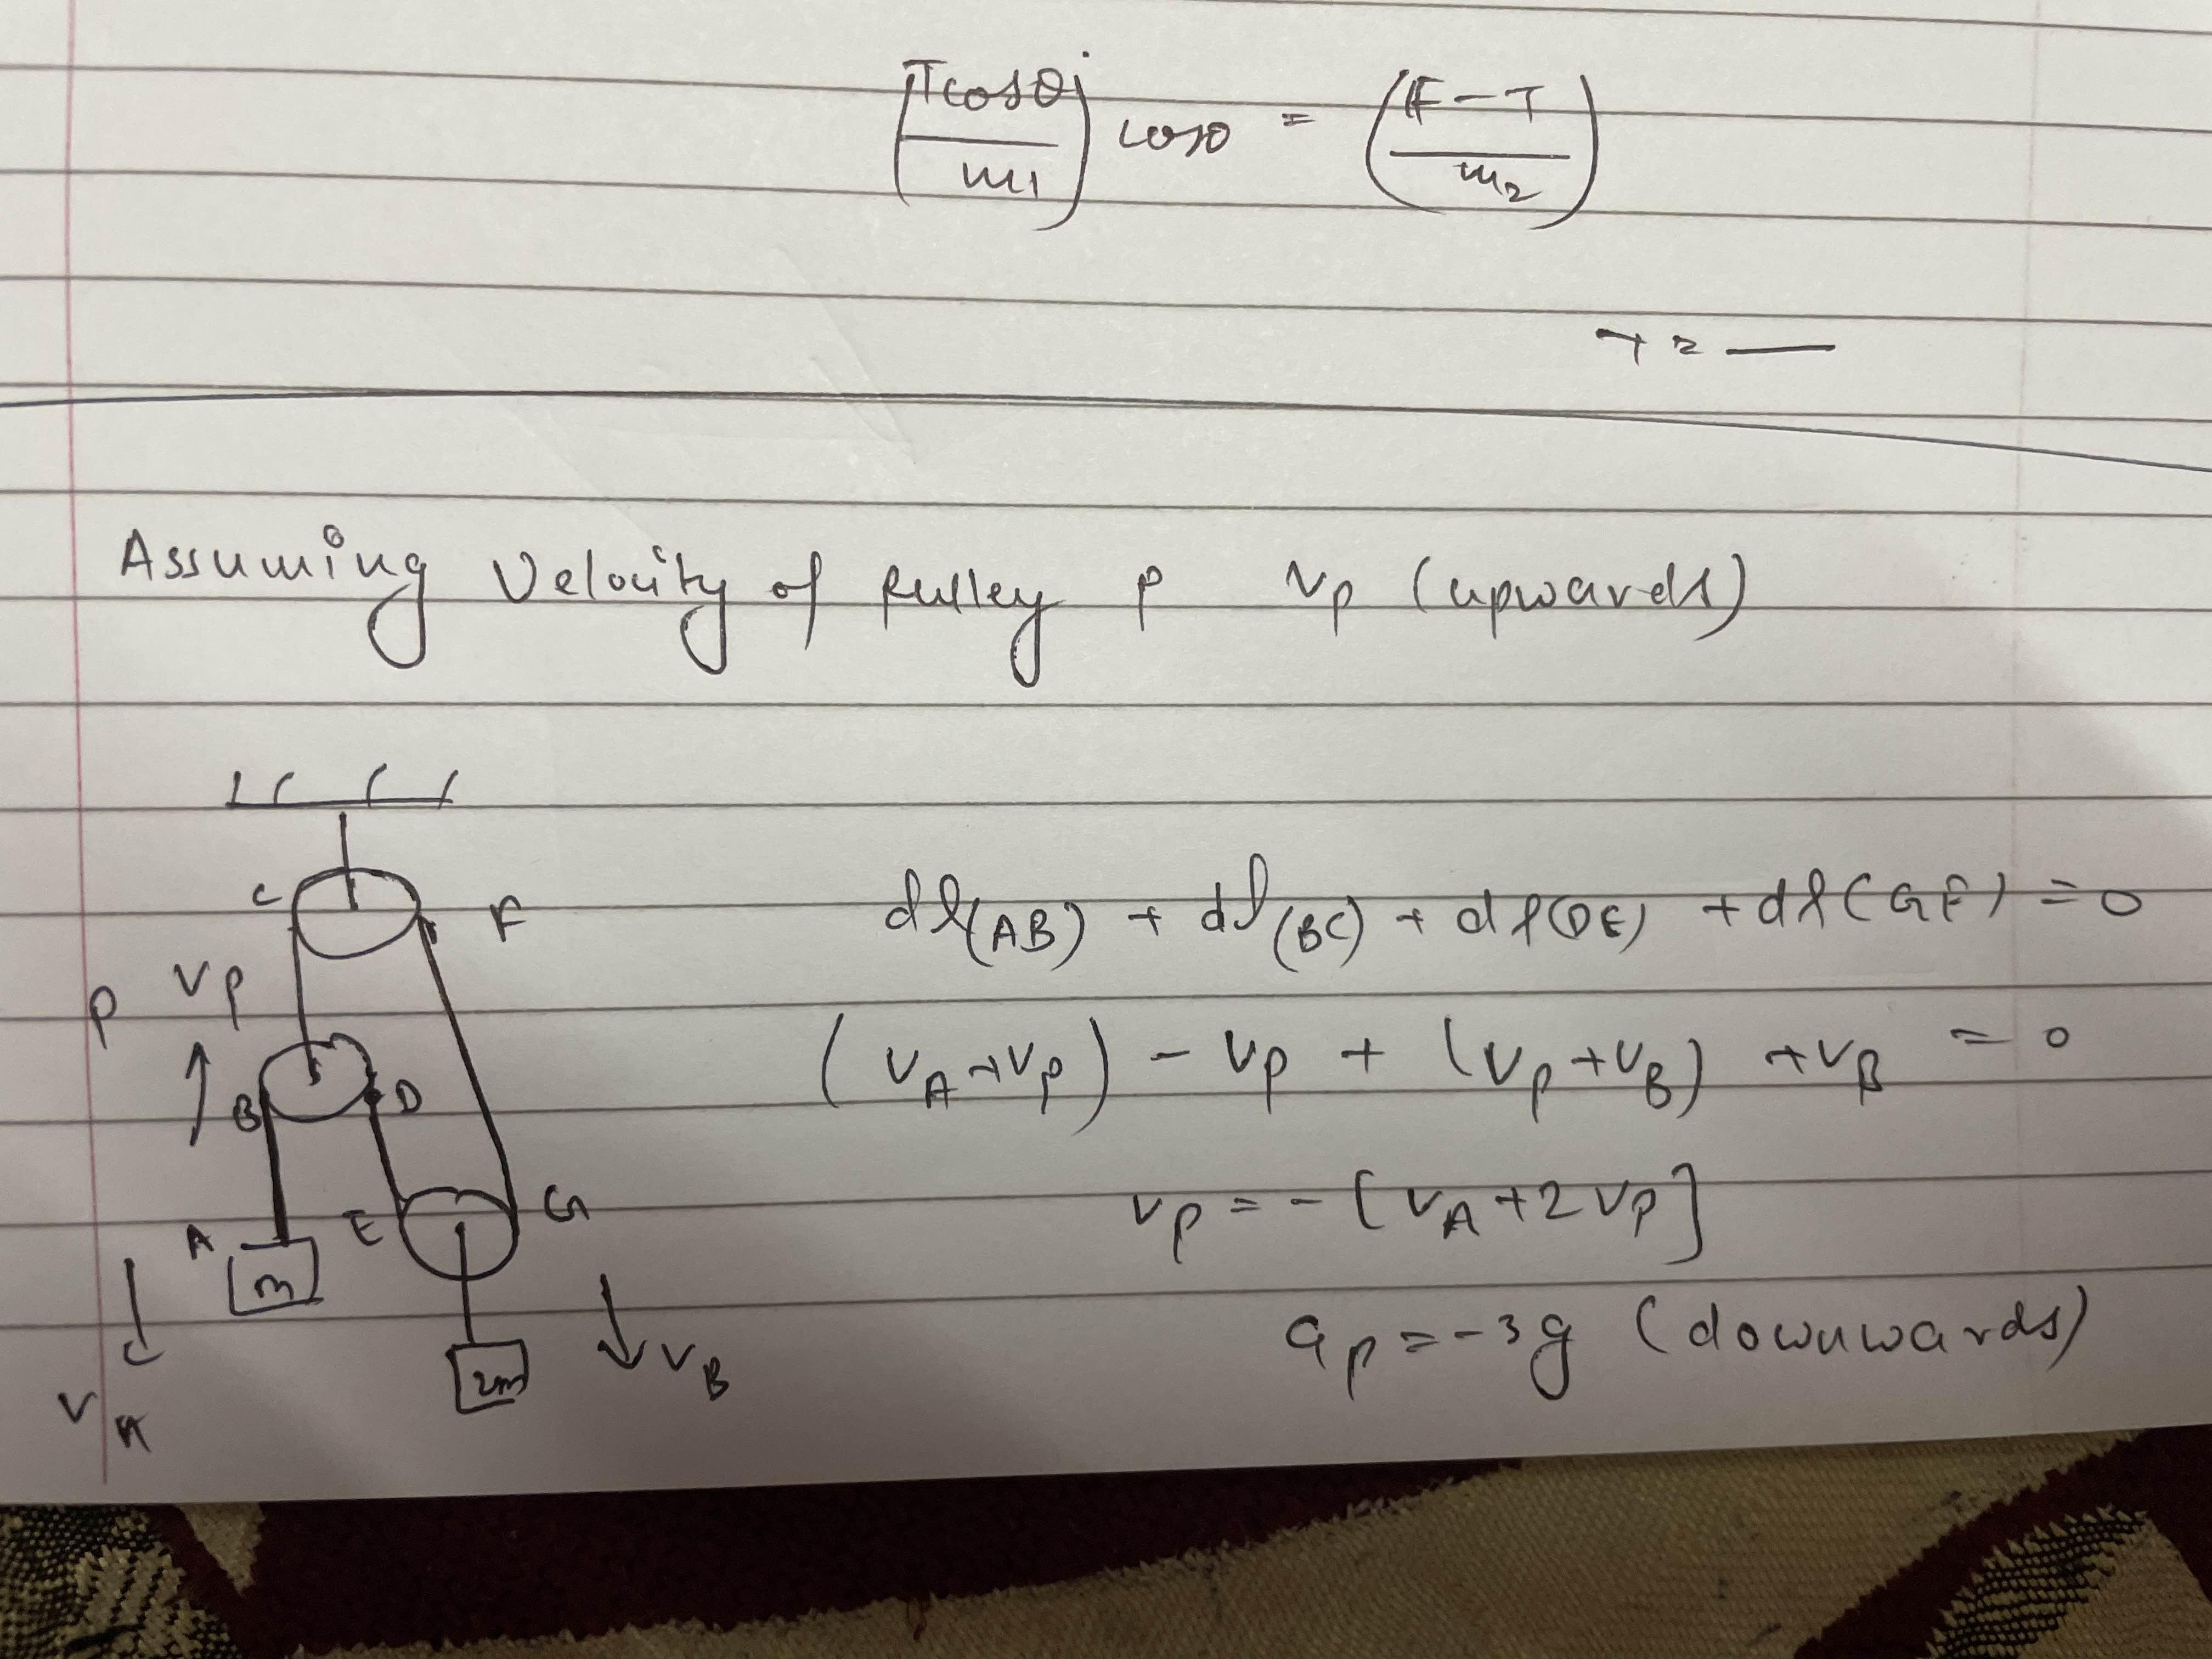 (Tcosθ/m1) cosθ = (F-T/m2)
T = —
Assuming Velocity of pulley P Vp (upwards)
C F
P Vp
B D
A E G
m
2m
VA
VB
dl(AB) + dl(BC) + dl(DE) + dl(GF) = 0
(VA+Vp) - Vp + (Vp+VB) + VB = 0
Vp = -[VA+2Vp]
ap = -3g (downwards)